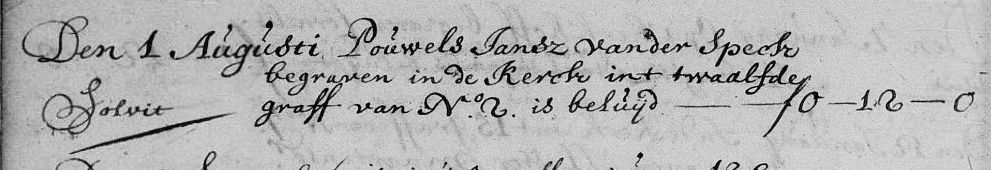 Den 1 Augusti Pouwels Jansz vander Speck
begraven in de Kerck int twaalfde
Solvit graff van N.º 2. is beluijd — — ƒ 0 — 12 — 0